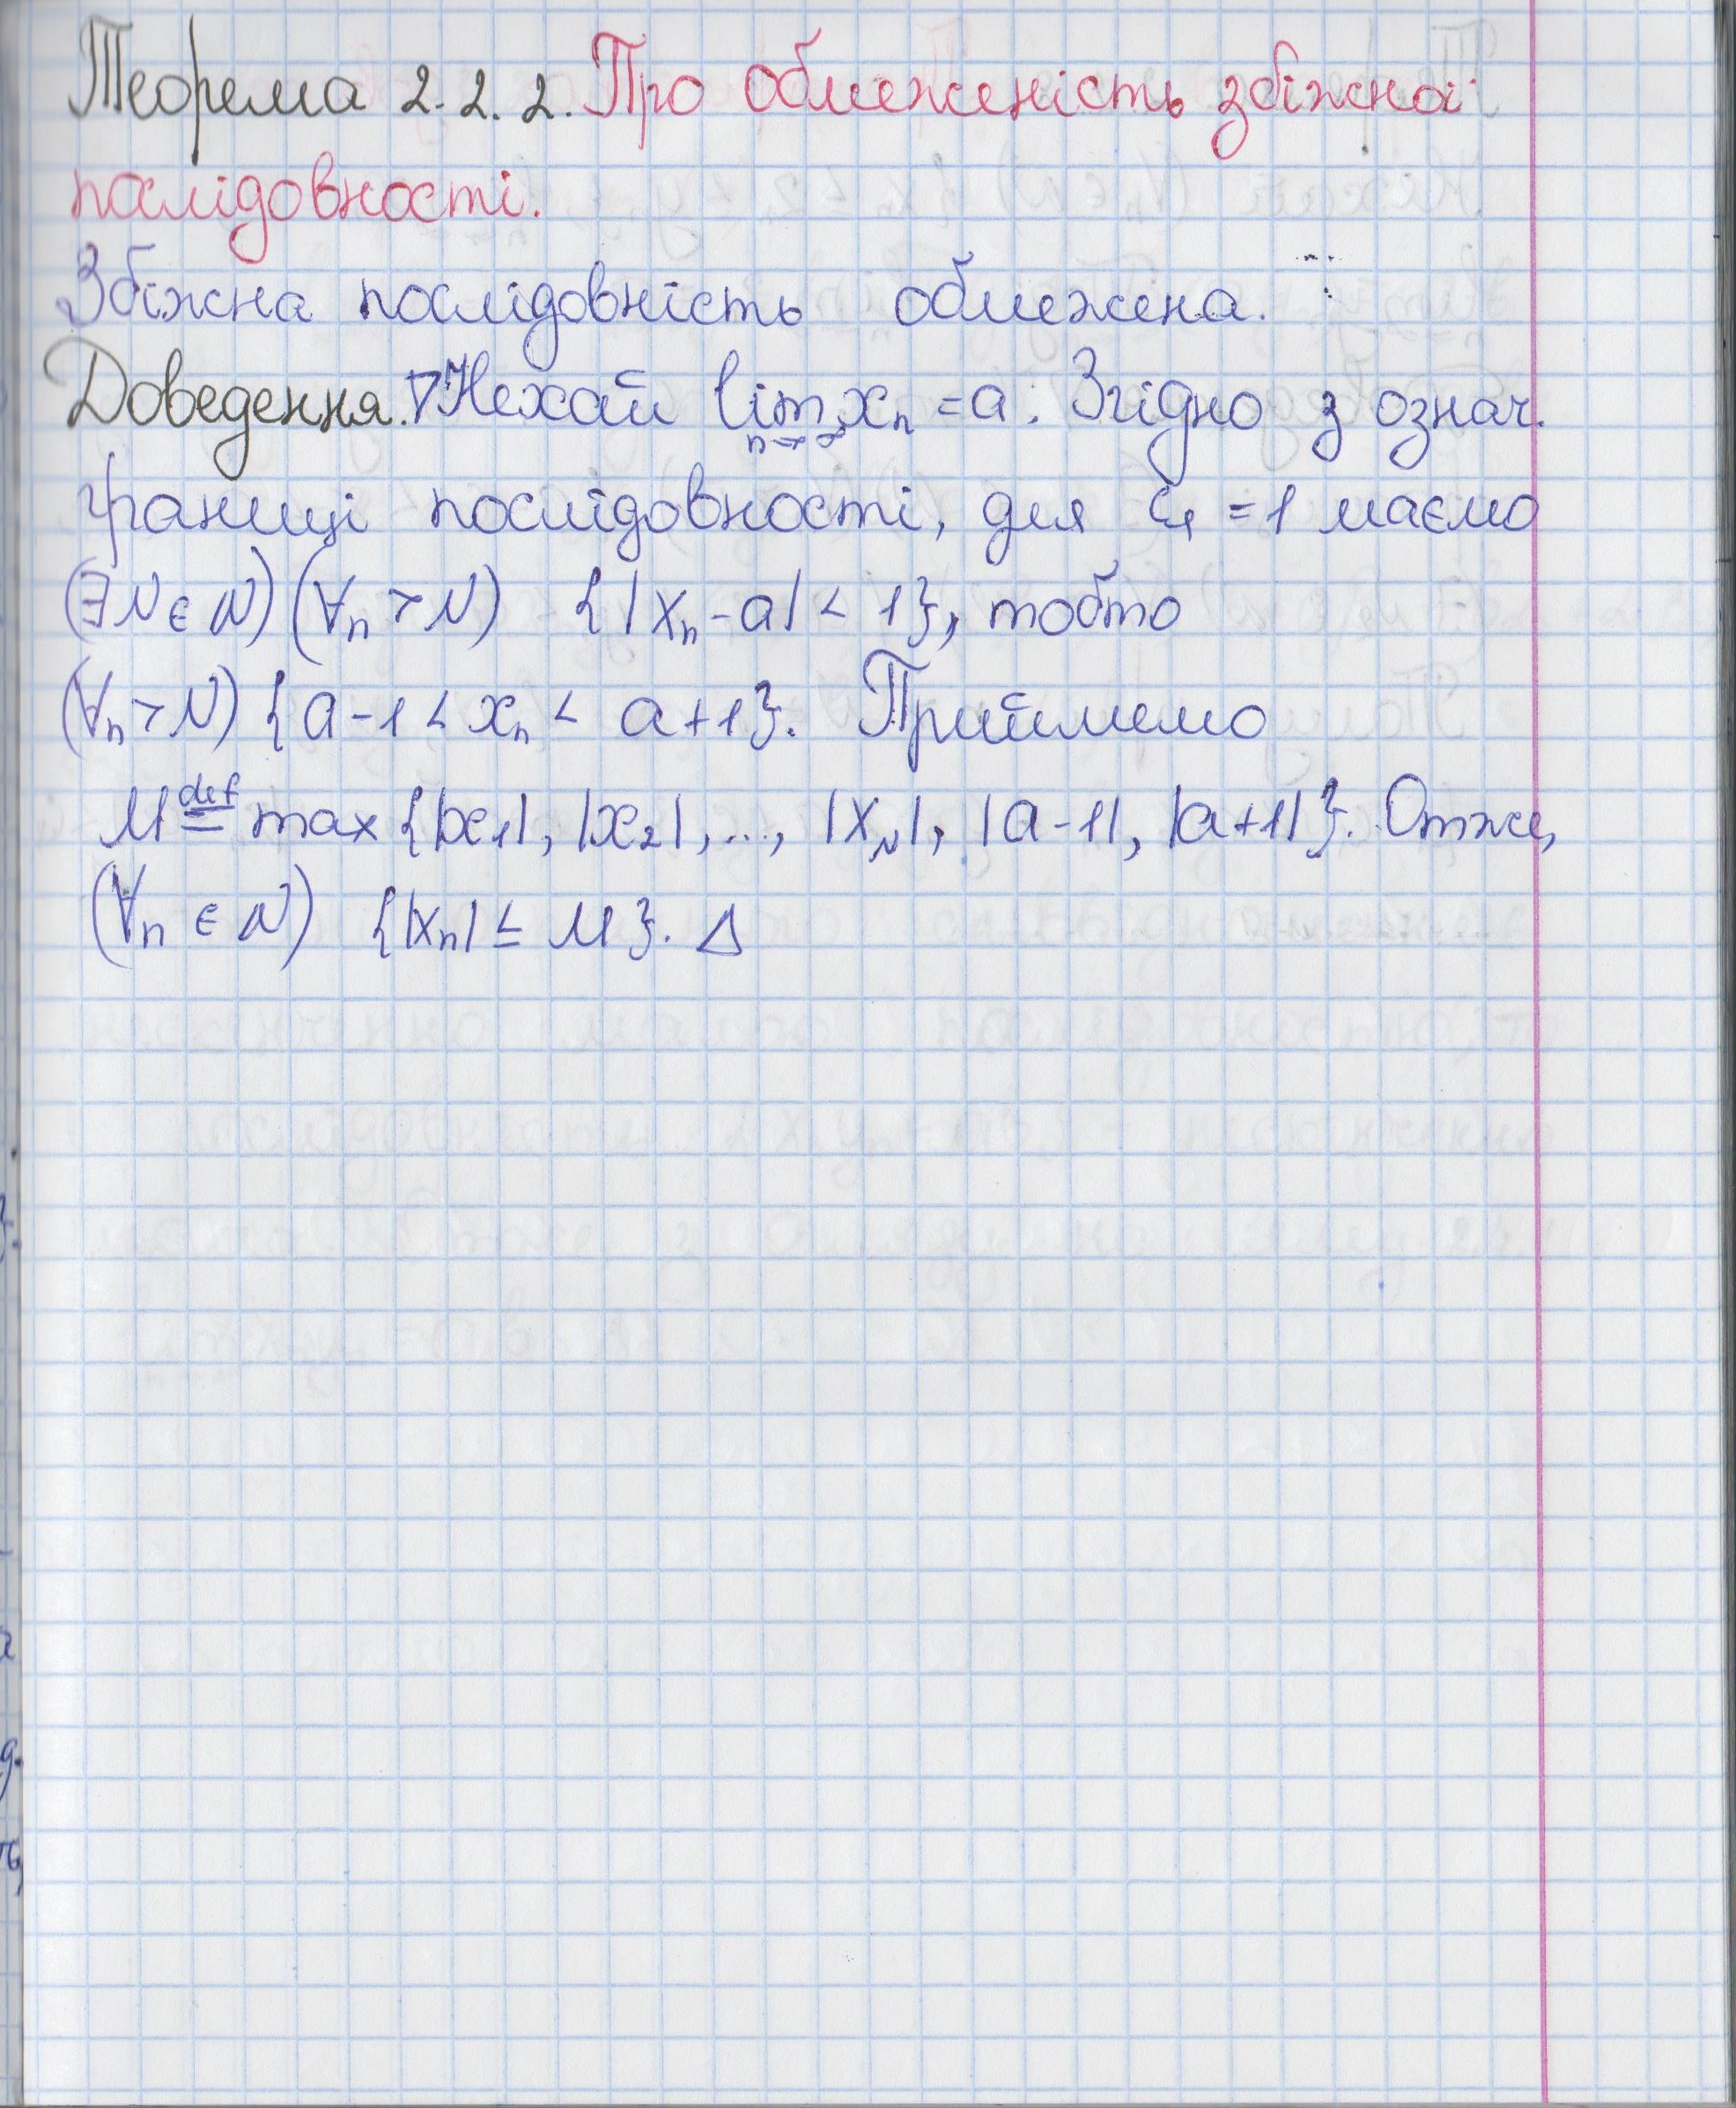 Теорема 2.2.2. Про обмеженість збіжної
послідовності.
Збіжна послідовність обмежена.
Доведення. ∇ Нехай lim xₙ = a. Згідно з означ.
n→∞
границі послідовності, для ε₁ = 1 маємо
(∃N ∈ N) (∀n > N) {|xₙ - a| < 1}, тобто
(∀n > N) {a - 1 < xₙ < a + 1}. Приймемо
M def= max {|x₁|, |x₂|, ..., |x_N|, |a - 1|, |a + 1|}. Отже,
(∀n ∈ N) {|xₙ| ≤ M}. Δ